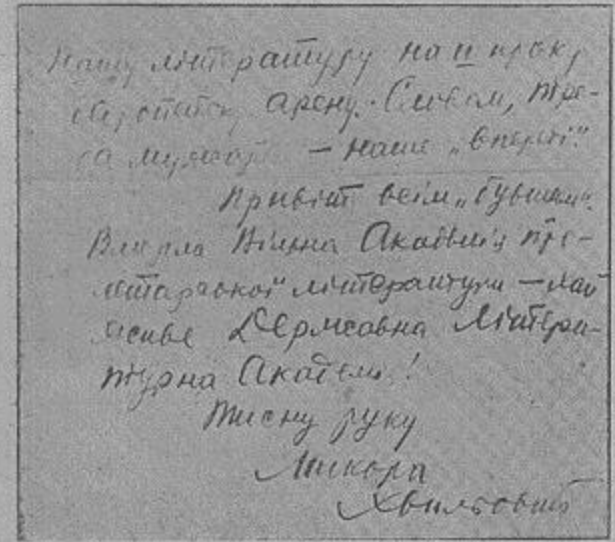 нашу літературу на її широку
європейську арену. Словом, тре-
ба мужати — наше „вперед“.
Привіт всім „бувшим“.
Вмерла Вільна Академія про-
летарської літератури — хай
живе Державна Літера-
турна Академія!
Тисну руку
Микола
Хвильовий